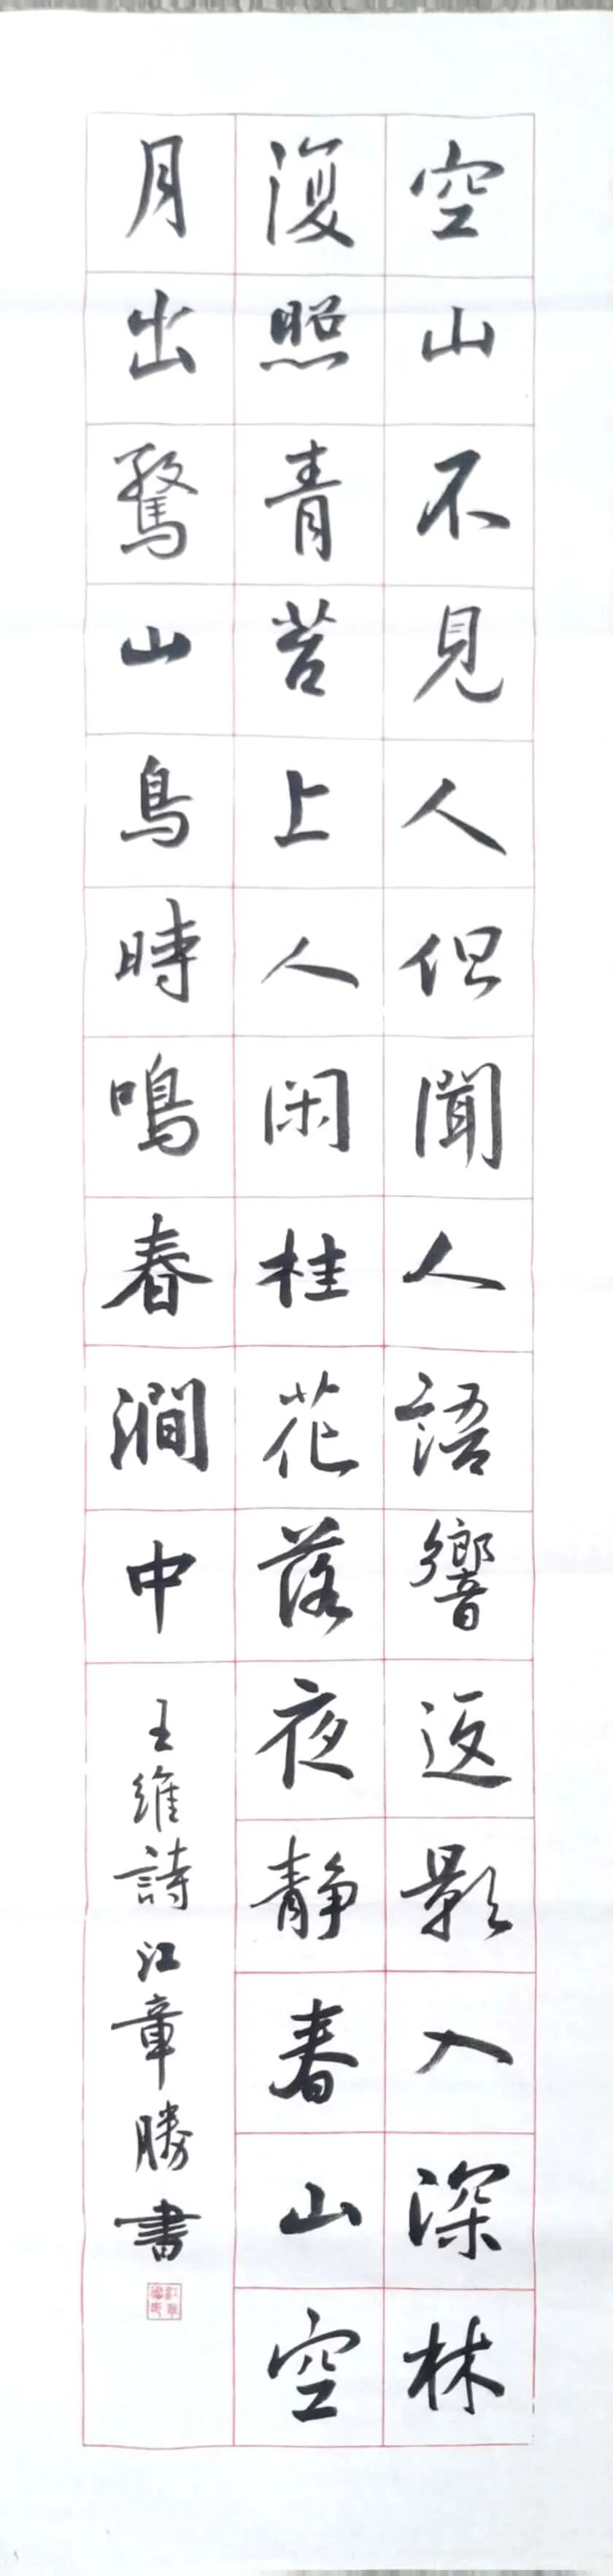 空山不見人但聞人語響返影入深林
復照青苔上人闲桂花落夜静春山空
月出驚山鳥時鳴春澗中王維詩江章勝書